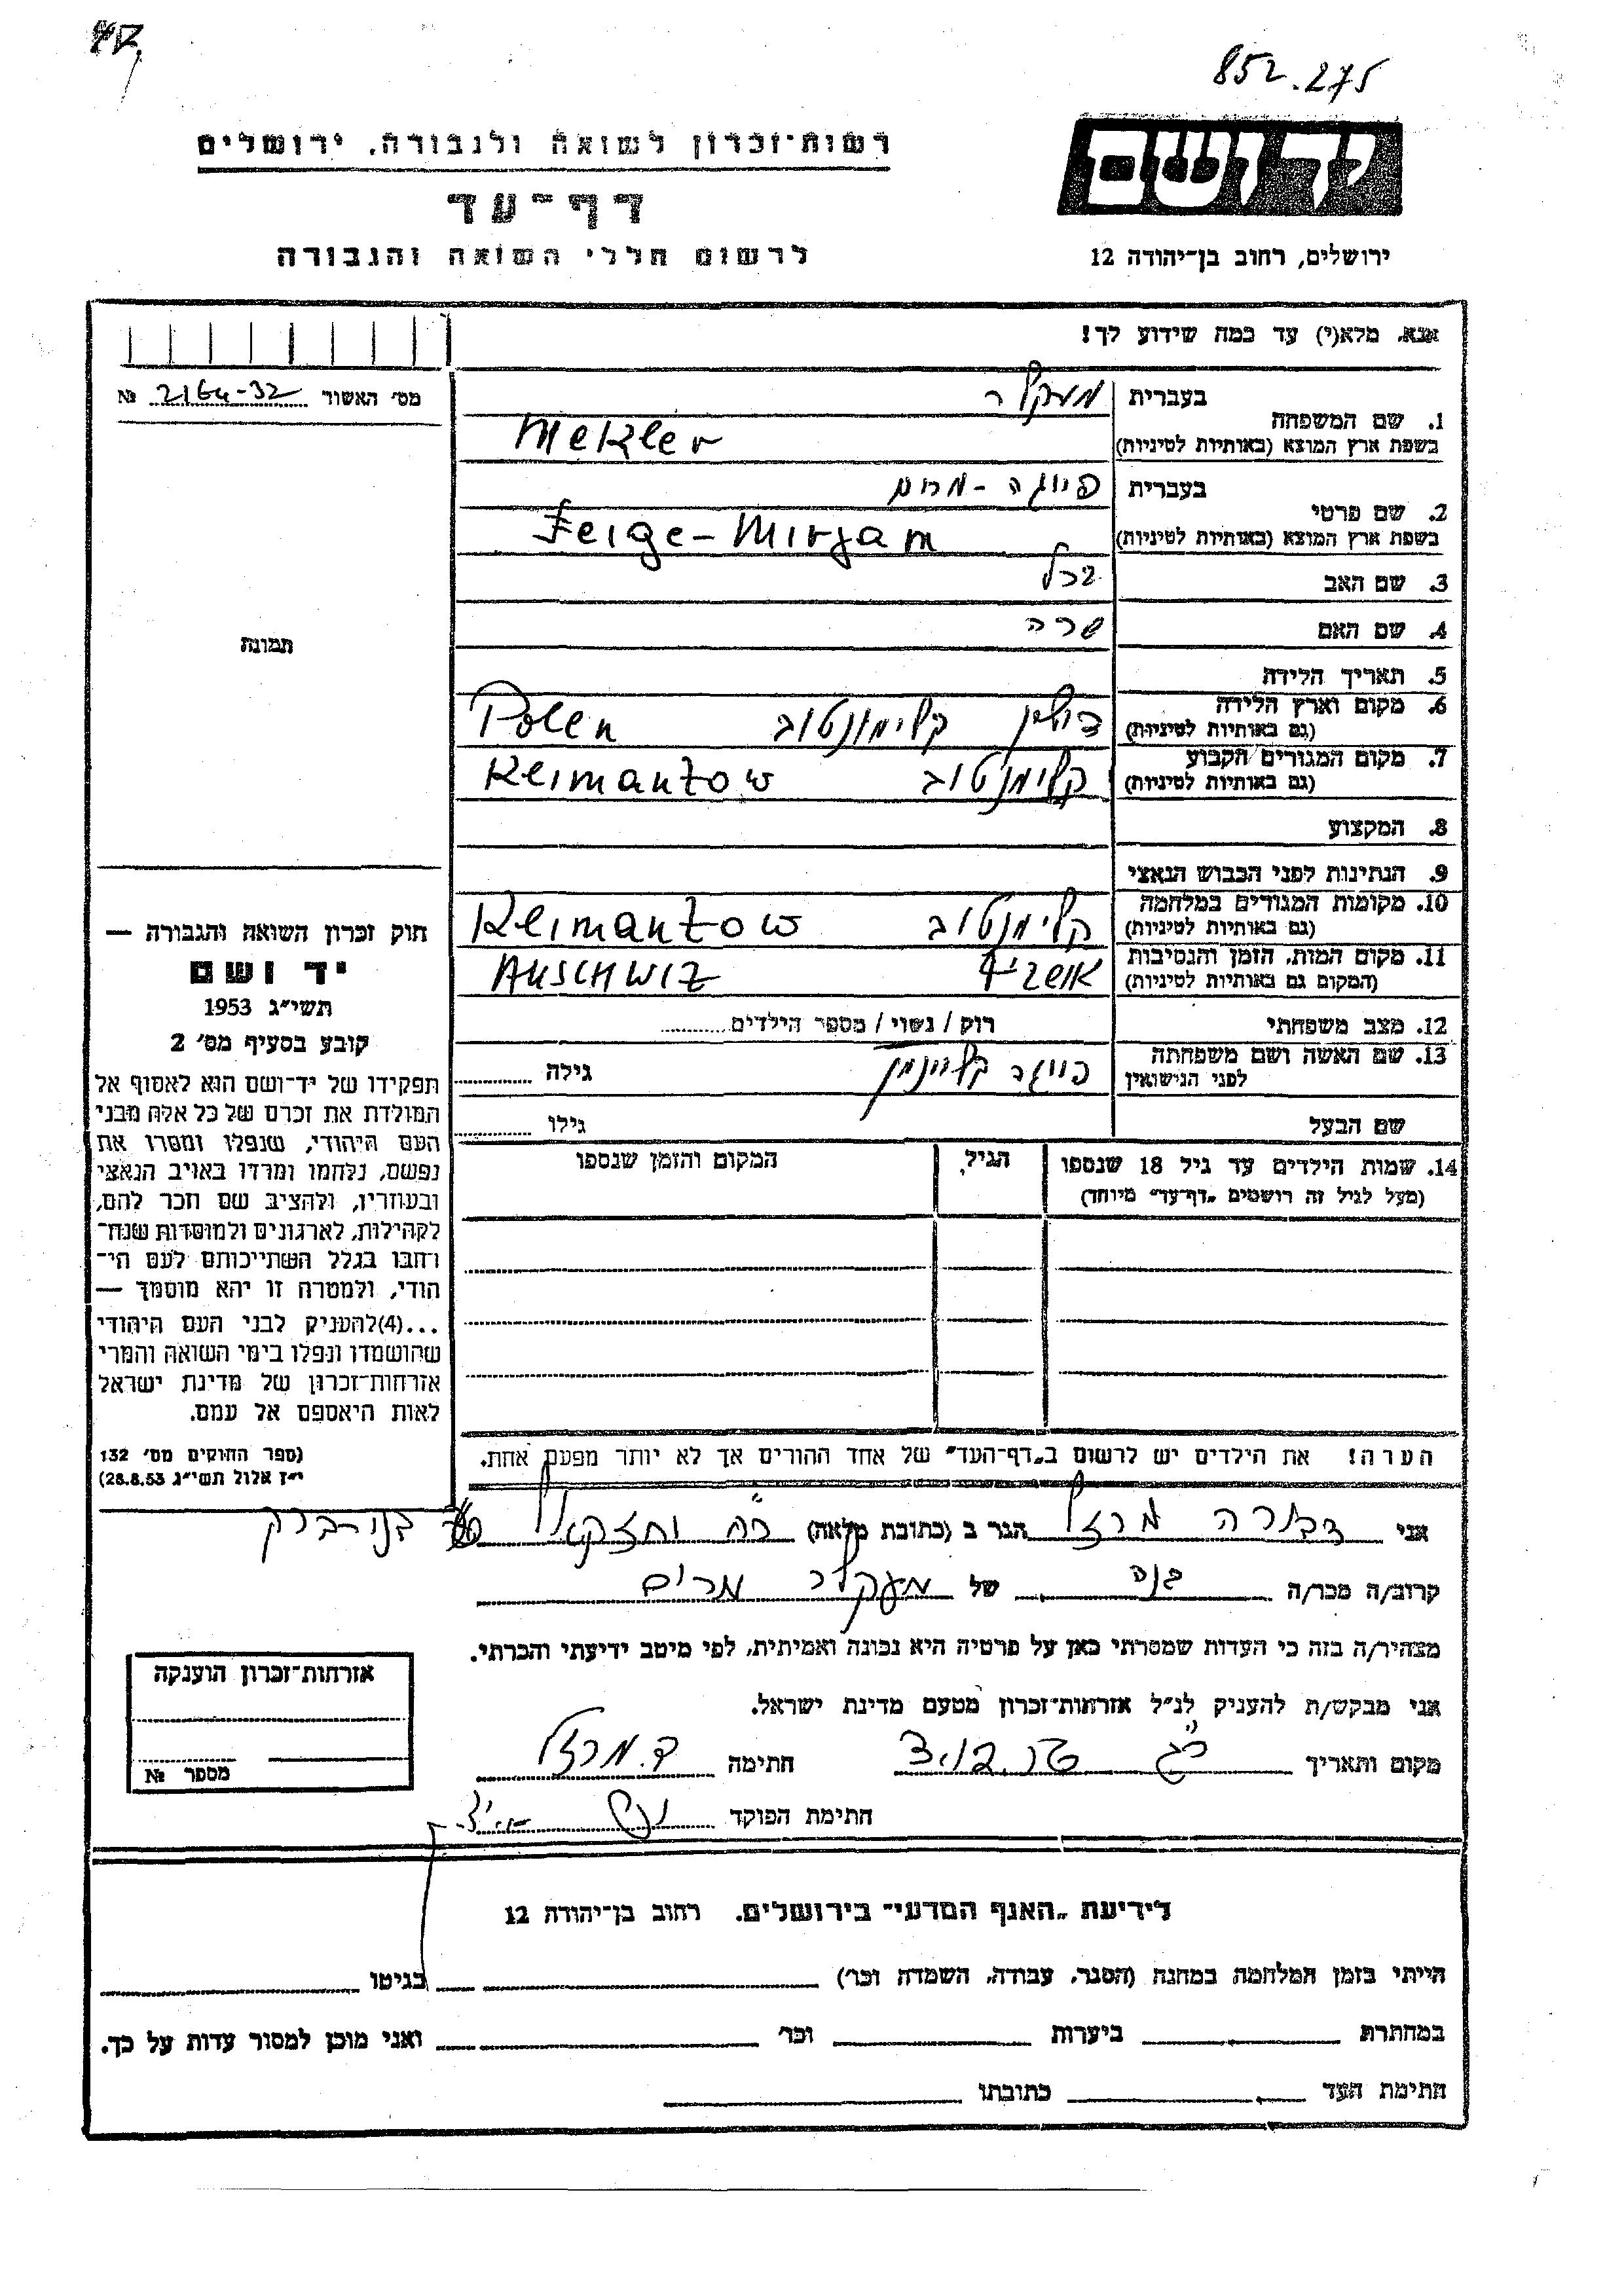 852.275
יד ושם
רשות־זכרון לשואה ולגבורה, ירושלים
דף־עד
לרשום חללי השואה והגבורה
ירושלים, רחוב בן־יהודה 12
אנא, מלא(י) עד כמה שידוע לך!
מס׳ האשור 2164-32 №
1. שם המשפחה
בעברית מעקלר
בשפת ארץ המוצא (באותיות לטיניות) Mekler
2. שם פרטי
בעברית פייגה - מרים
בשפת ארץ המוצא (באותיות לטיניות) Feige-Mirjam
3. שם האב
4. שם האם שרה
תמונה
5. תאריך הלידה
6. מקום וארץ הלידה (גם באותיות לטיניות) פולין קלימונטוב Polen
7. מקום המגורים הקבוע (גם באותיות לטיניות) קלימנטוב Kleimantow
8. המקצוע
9. הנתינות לפני הכבוש הנאצי
10. מקומות המגורים במלחמה (גם באותיות לטיניות) קלימנטוב Kleimantow
11. מקום המות, הזמן והנסיבות (המקום גם באותיות לטיניות) אושביץ AUSCHWIZ
12. מצב משפחתי רוק / נשוי / מספר הילדים
13. שם האשה ושם משפחתה לפני הנישואין פייגה קליינמן גילה
שם הבעל גילו
14. שמות הילדים עד גיל 18 שנספו
(מעל לגיל זה רושמים „דף־עד״ מיוחד)
הגיל
המקום והזמן שנספו
חוק זכרון השואה והגבורה —
יד ושם
תשי״ג 1953
קובע בסעיף מס׳ 2
תפקידו של יד־ושם הוא לאסוף אל
המולדת את זכרם של כל אלה מבני
העם היהודי, שנפלו ומסרו את
נפשם, נלחמו ומרדו באויב הנאצי
ובעוזריו, ולהציב שם וזכר להם,
לקהילות, לארגונים ולמוסדות שנח־
רחבו בגלל השתייכותם לעם הי־
הודי, ולמטרה זו יהא מוסמך —
...(4)להעניק לבני העם היהודי
שהושמדו ונפלו בימי השואה והמרי
אזרחות־זכרון של מדינת ישראל
לאות היאספם אל עמם.
(ספר החוקים מס׳ 132
י״ז אלול תשי״ג 28.8.53)
הערה! את הילדים יש לרשום ב„דף־העד״ של אחד ההורים אך לא יותר מפעם אחת.
אני דבורה מרזל הגר ב (כתובת מלאה) רח׳ יחזקאל בני-ברק
קרוב/ה מכר/ה בתה של מעקלר מרים
מצהיר/ה בזה כי העדות שמסרתי כאן על פרטיה היא נכונה ואמיתית, לפי מיטב ידיעתי והכרתי.
אני מבקש/ת להעניק לנ״ל אזרחות־זכרון מטעם מדינת ישראל.
מקום ותאריך חתימה ד. מרזל
חתימת הפוקד
אזרחות־זכרון הוענקה
מספר №
לידיעת „האגף המדעי״ בירושלים, רחוב בן־יהודה 12
הייתי בזמן המלחמה במחנה (הסגר, עבודה, השמדה וכר׳) בגיטו
במחתרת ביערות וכר׳ ואני מוכן למסור עדות על כך.
חתימת העד כתובתו